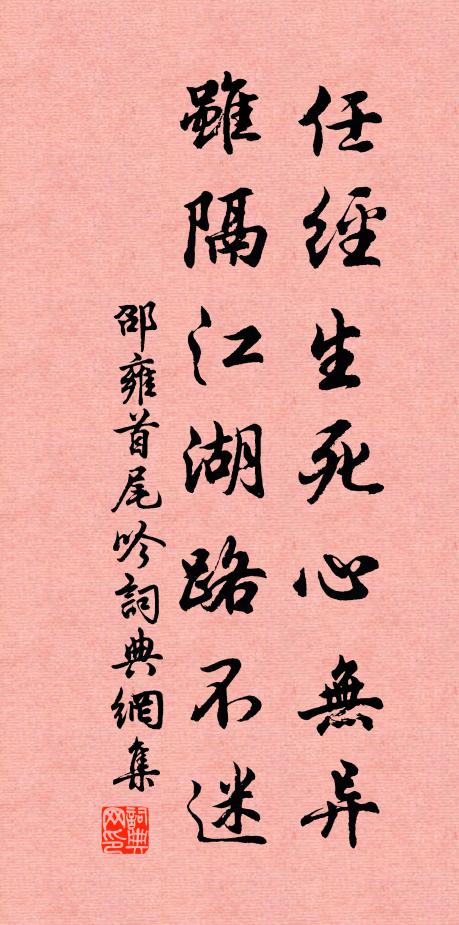 任經生死心無异
雖隔江湖路不迷
邵雍首尾吟詞典網集
詞典網印